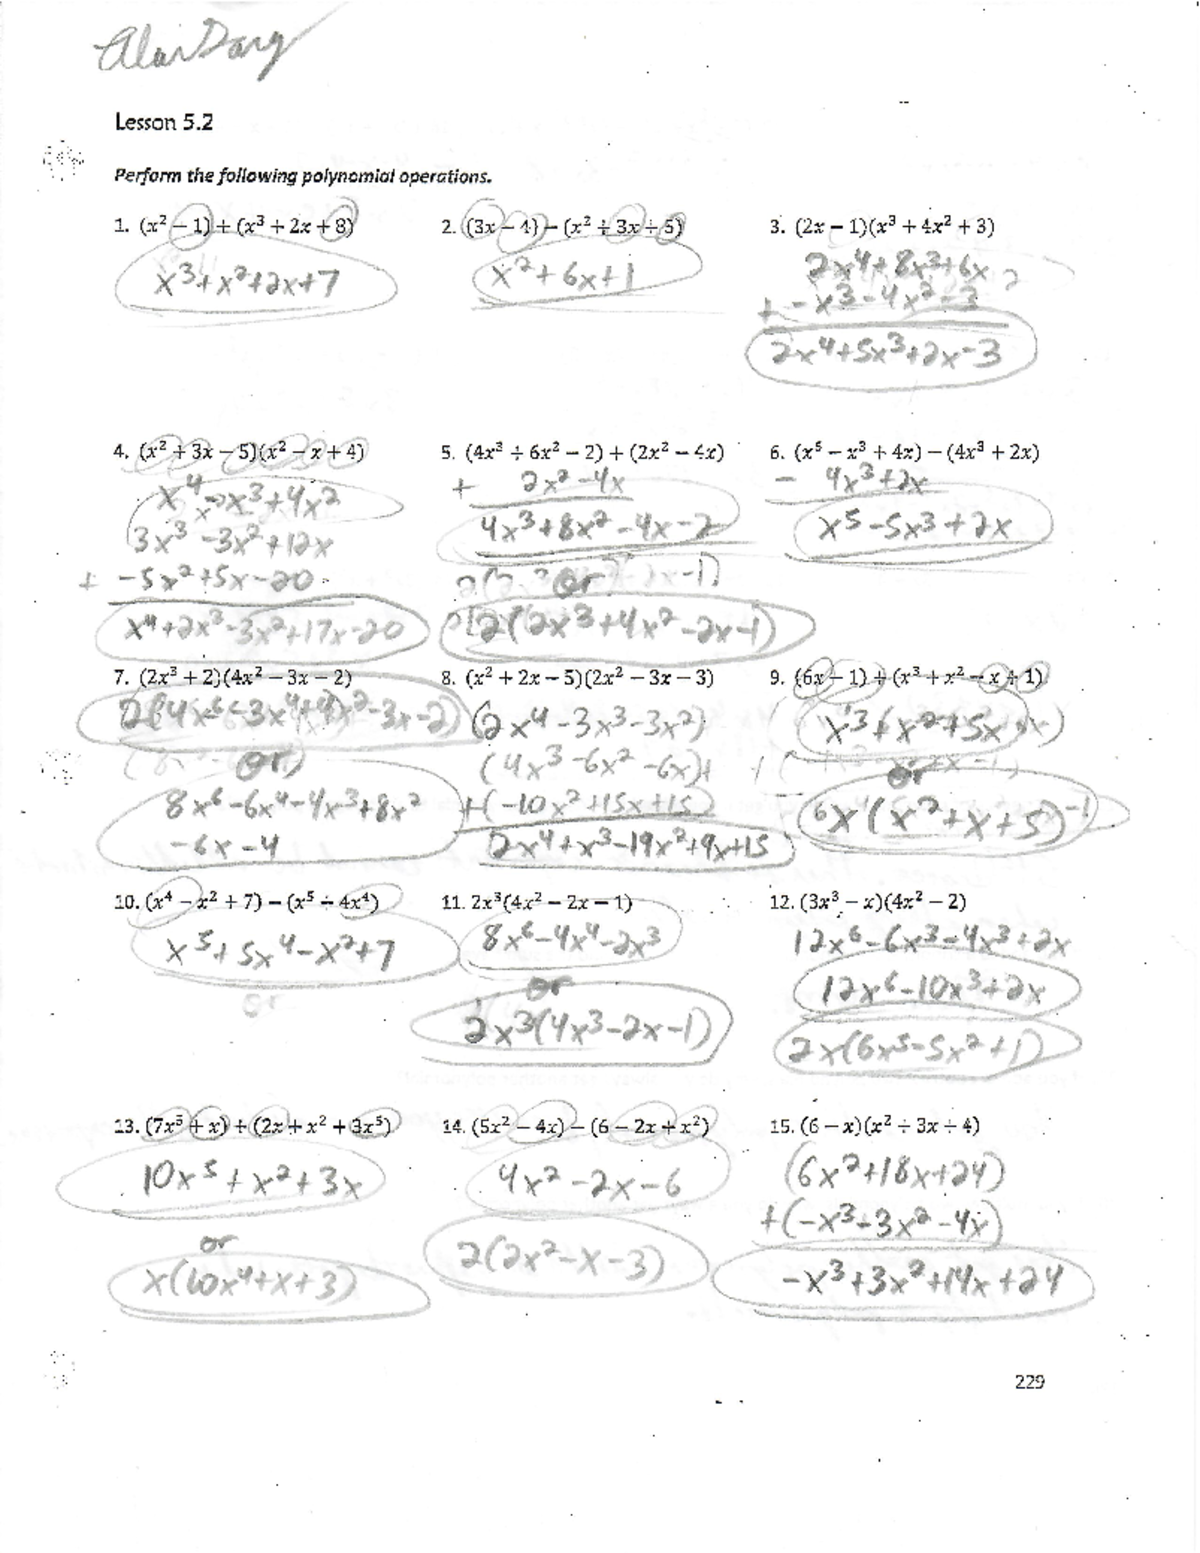 Alan Dang
Lesson 5.2
Perform the following polynomial operations.
1. (x² − 1) + (x³ + 2x + 8)
x³+x²+2x+7
2. (3x − 4) − (x² + 3x + 5)
x²+6x+1
3. (2x − 1)(x³ + 4x² + 3)
2x⁴+8x³+6x
+ -x³-4x²-3
2x⁴+5x³+2x-3
4. (x² + 3x − 5)(x² − x + 4)
x⁴-x³+4x²
3x³-3x²+12x
+ -5x²+5x-20
x⁴+2x³-3x²+17x-20
5. (4x³ + 6x² − 2) + (2x² − 4x)
+ 2x²-4x
4x³+8x²-4x-2
or
2(2x³+4x²-2x-1)
6. (x⁵ − x³ + 4x) − (4x³ + 2x)
- 4x³+2x
x⁵-5x³+2x
7. (2x³ + 2)(4x² − 3x − 2)
2(4x⁶-3x⁴+4x²-3x-2)
or
8x⁶-6x⁴-4x³+8x²
-6x-4
8. (x² + 2x − 5)(2x² − 3x − 3)
(2x⁴-3x³-3x²)
(4x³-6x²-6x)+
+(-10x²+15x+15)
2x⁴+x³-19x²+9x+15
9. (6x − 1) + (x³ + x² − x + 1)
x³+x²+5x
or
x(x²+x+5)
10. (x⁴ − x² + 7) − (x⁵ − 4x⁴)
x⁵+5x⁴-x²+7
or
11. 2x³(4x² − 2x − 1)
8x⁶-4x⁴-2x³
or
2x³(4x³-2x-1)
12. (3x³ − x)(4x² − 2)
12x⁶-6x³-4x³+2x
12x⁶-10x³+2x
2x(6x⁵-5x²+1)
13. (7x⁵ + x) + (2x + x² + 3x⁵)
10x⁵+x²+3x
or
x(10x⁴+x+3)
14. (5x² − 4x) − (6 − 2x + x²)
4x²-2x-6
2(2x²-x-3)
15. (6 − x)(x² + 3x + 4)
(6x²+18x+24)
+(-x³-3x²-4x)
-x³+3x²+14x+24
229